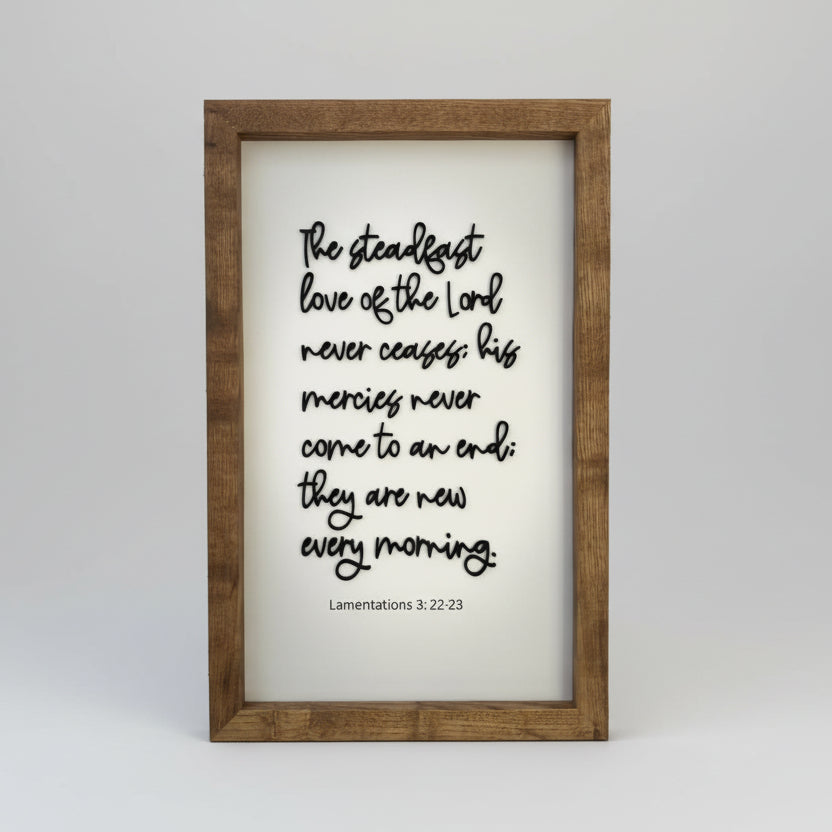 The steadfast
love of the Lord
never ceases; his
mercies never
come to an end;
they are new
every morning.
Lamentations 3:22-23